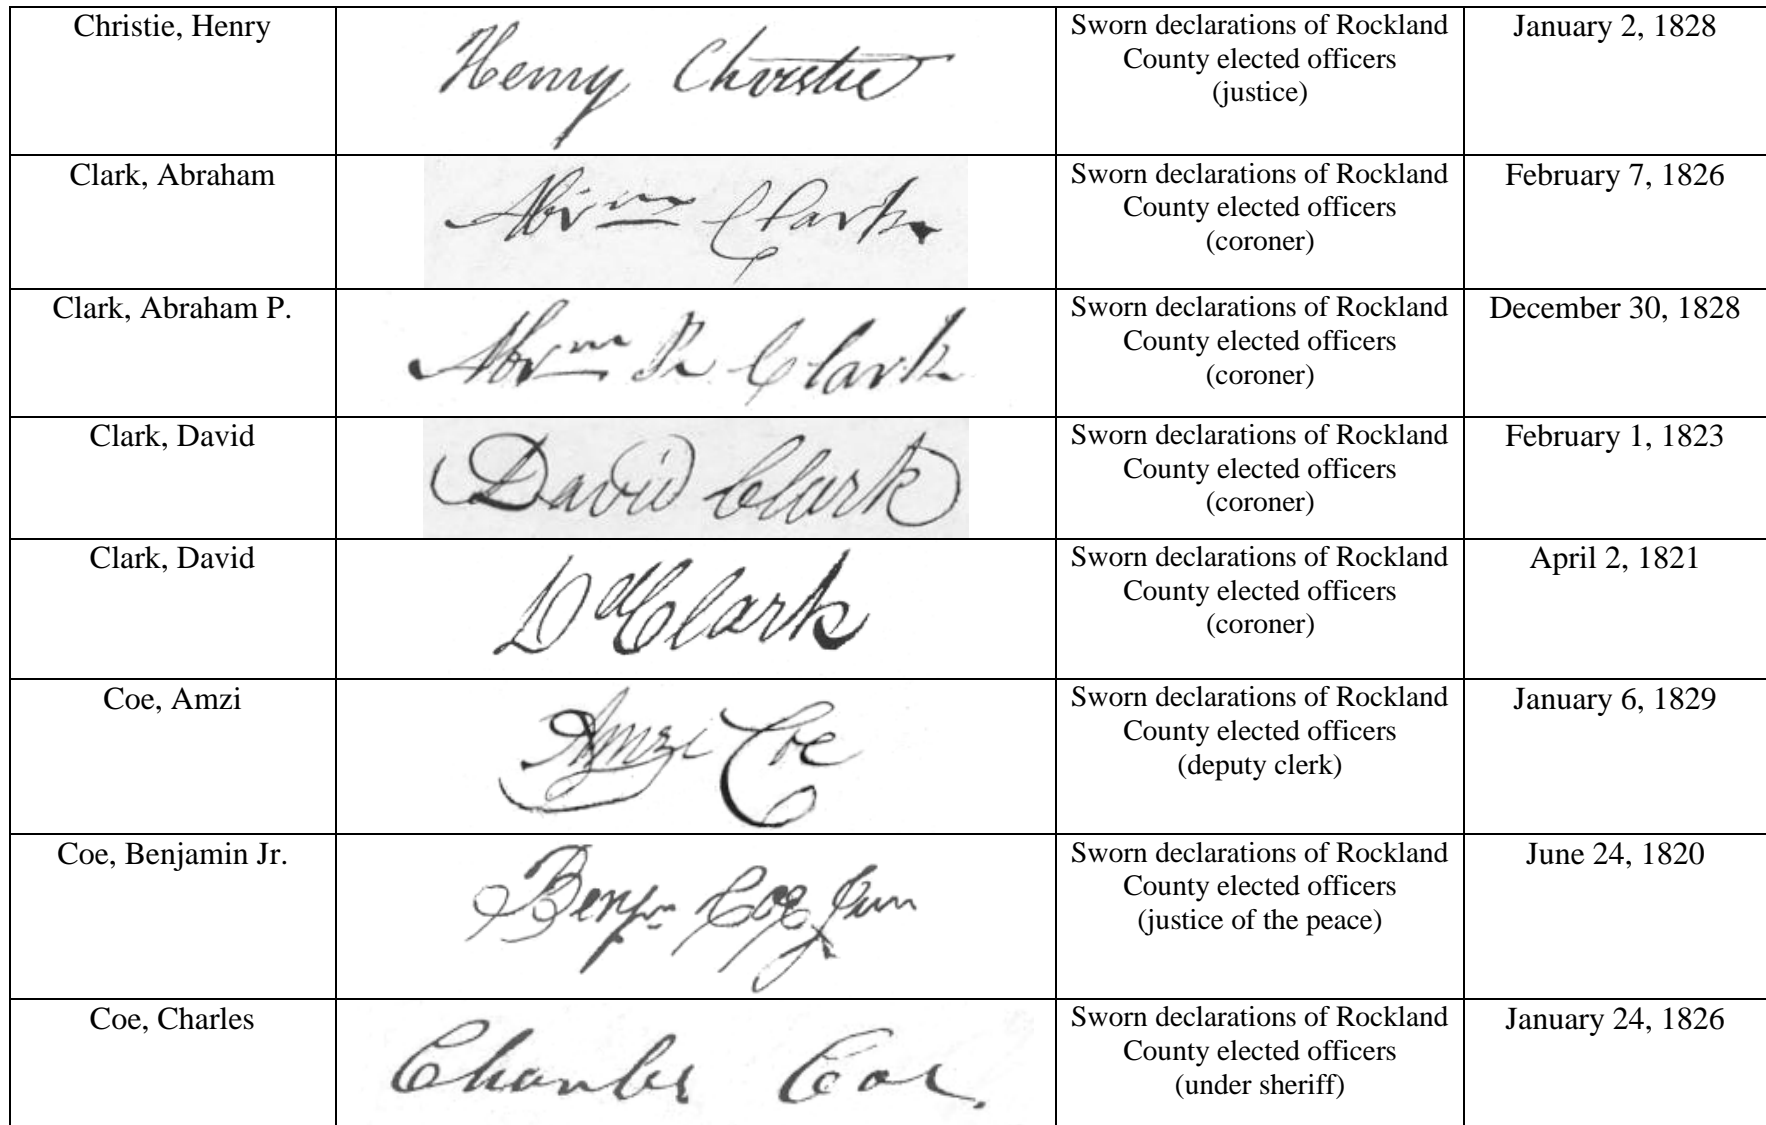 Christie, Henry
Henry Christie
Sworn declarations of Rockland
County elected officers
(justice)
January 2, 1828
Clark, Abraham
Abrm Clark
Sworn declarations of Rockland
County elected officers
(coroner)
February 7, 1826
Clark, Abraham P.
Abrm P. Clark
Sworn declarations of Rockland
County elected officers
(coroner)
December 30, 1828
Clark, David
David Clark
Sworn declarations of Rockland
County elected officers
(coroner)
February 1, 1823
Clark, David
Dd Clark
Sworn declarations of Rockland
County elected officers
(coroner)
April 2, 1821
Coe, Amzi
Amzi Coe
Sworn declarations of Rockland
County elected officers
(deputy clerk)
January 6, 1829
Coe, Benjamin Jr.
Benjn Coe Jun
Sworn declarations of Rockland
County elected officers
(justice of the peace)
June 24, 1820
Coe, Charles
Charles Coe.
Sworn declarations of Rockland
County elected officers
(under sheriff)
January 24, 1826